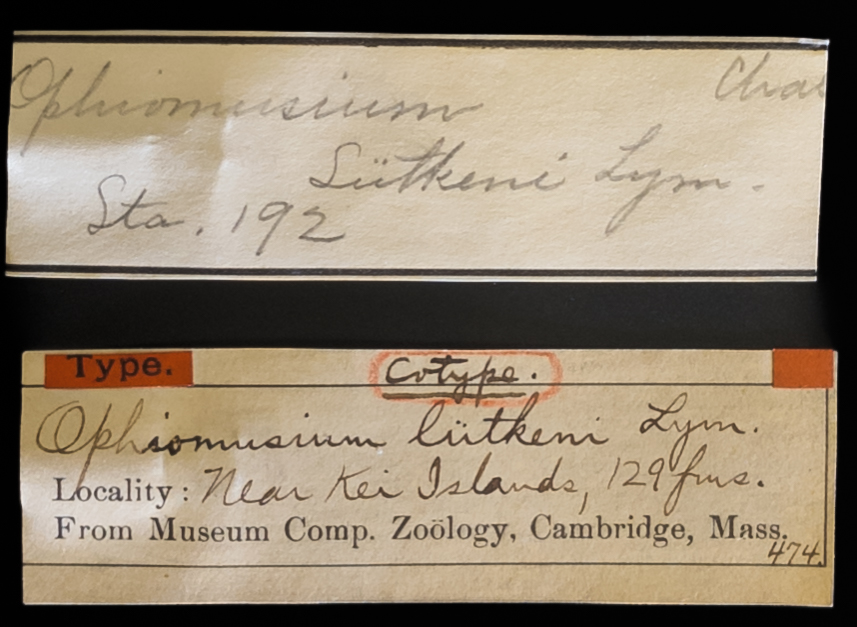 Ophiomusium
Lütkeni Lym.
Sta. 192
Type.
Cotype.
Ophiomusium lütkeni Lym.
Locality: Near Kei Islands, 129 fms.
From Museum Comp. Zoölogy, Cambridge, Mass.
474.